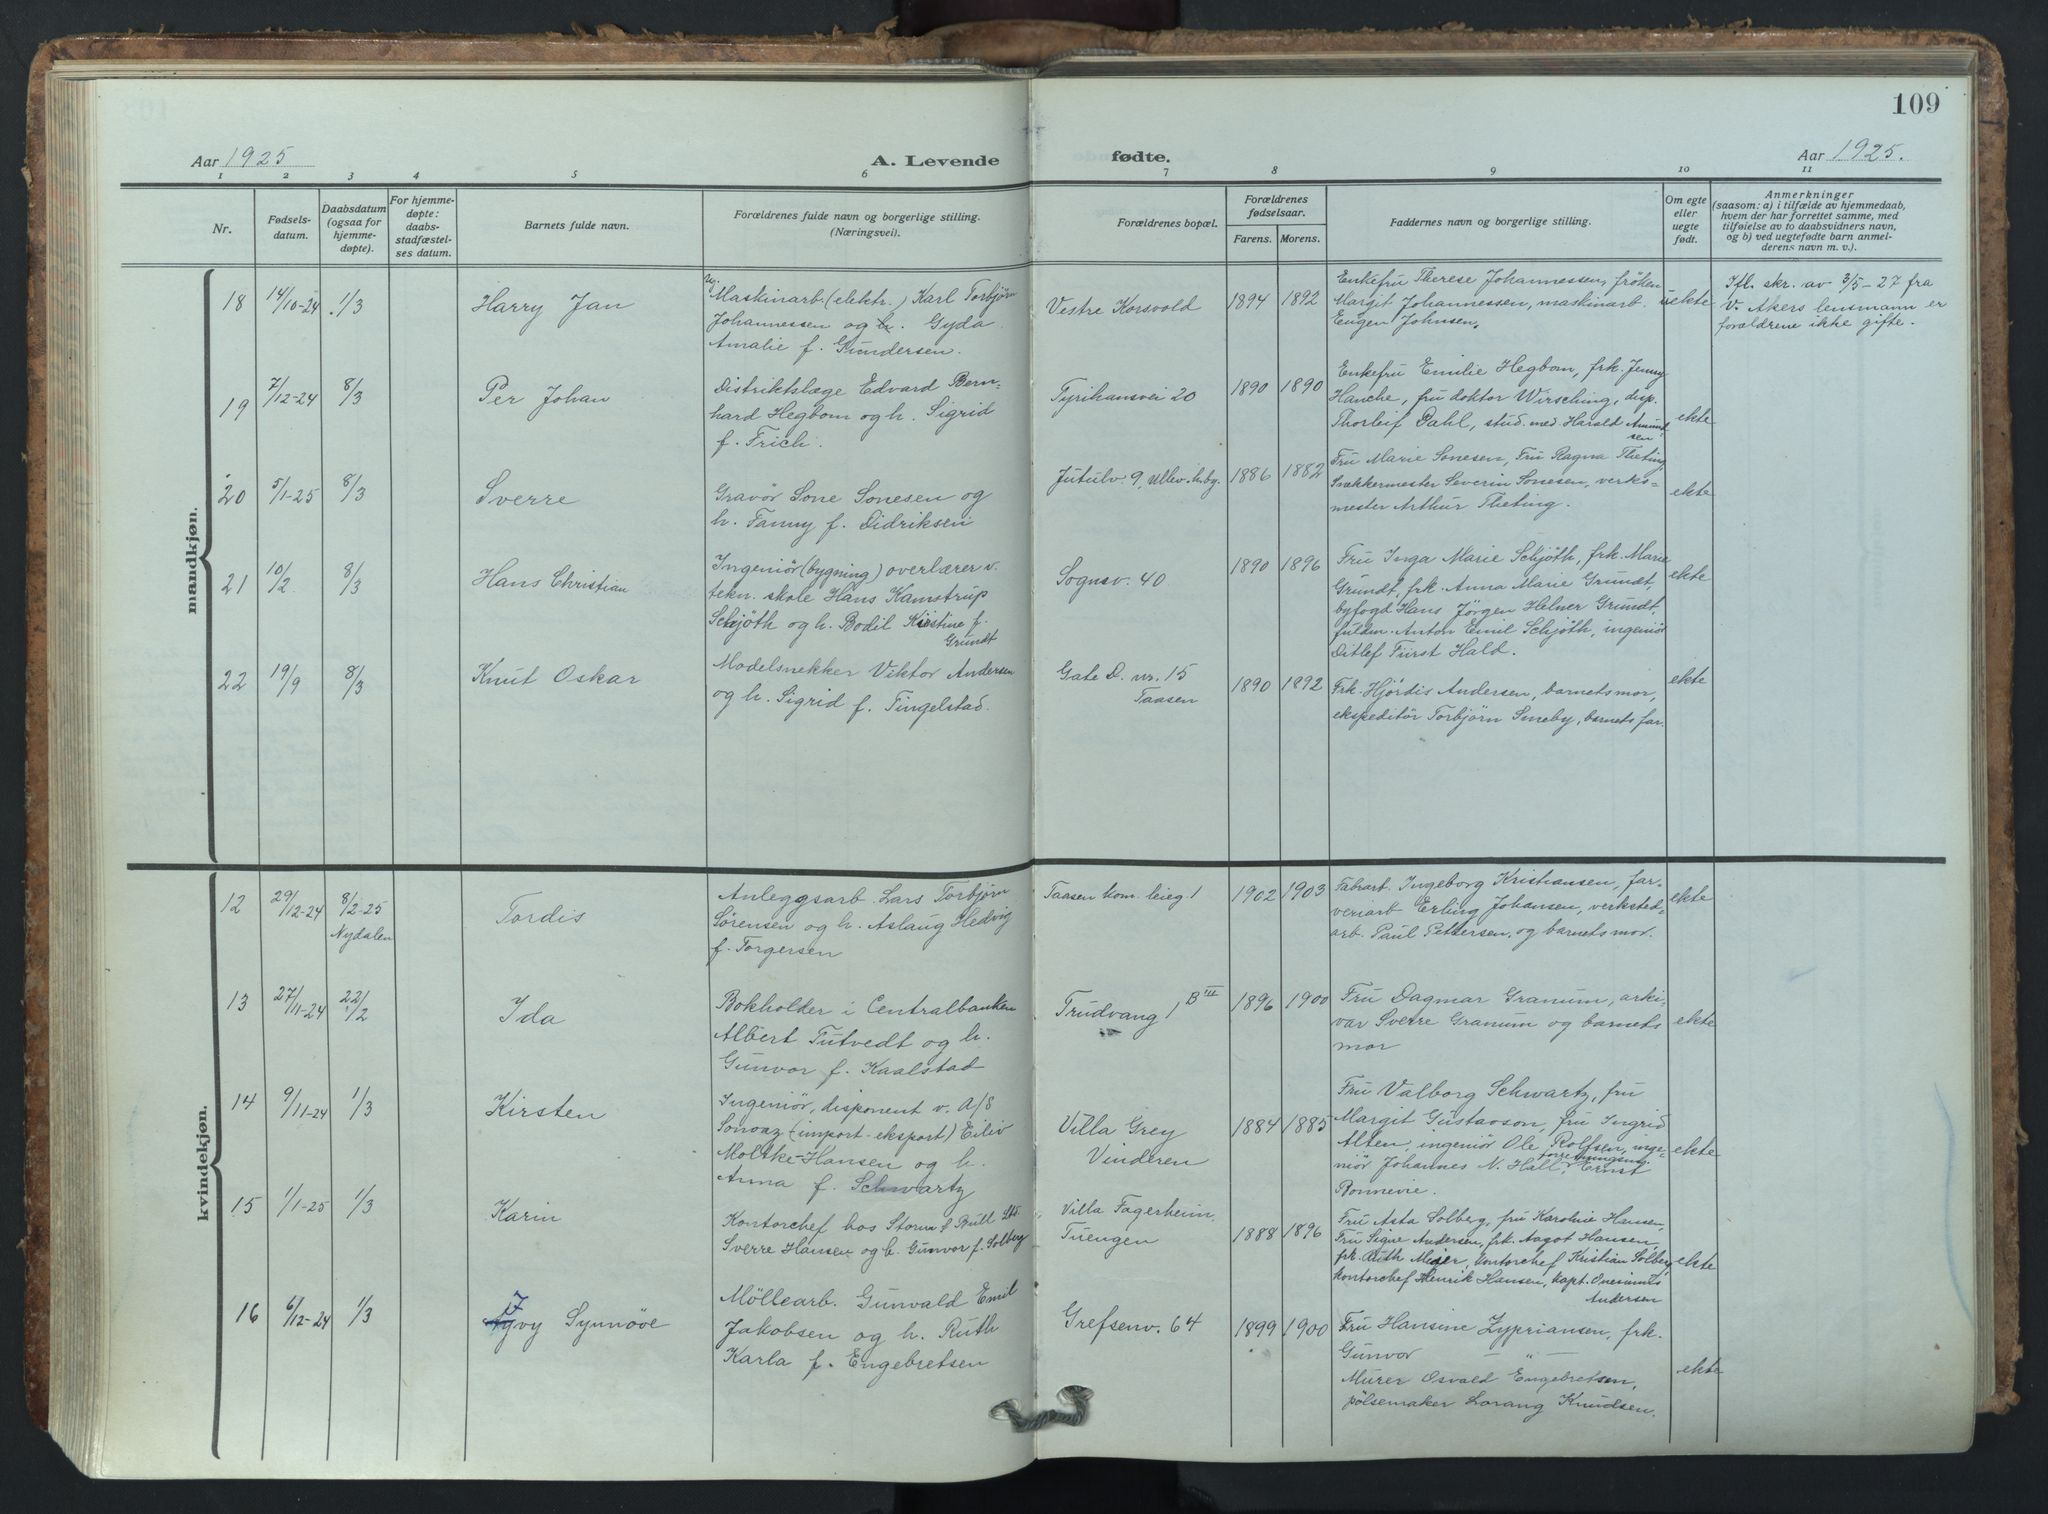 109
Aar 1925
A. Levende
fødte.
Aar 1925.
1 2 3 4 5 6 7 8 9 10 11
Nr.
Fødsels-
datum.
Daabsdatum
(ogsaa for
hjemme-
døpte).
For hjemme-
døpte:
daabs-
stadfæstel-
ses datum.
Barnets fulde navn.
Forældrenes fulde navn og borgerlige stilling.
(Næringsvei).
Forældrenes bopæl.
Forældrenes
fødselsaar.
Farens. Morens.
Faddernes navn og borgerlige stilling.
Om egte
eller
uegte
født.
Anmerkninger
(saasom: a) i tilfælde av hjemmedaab,
hvem der har forrettet samme, med
tilføielse av to daabsvidners navn,
og b) ved uegtefødte barn anmel-
derens navn m. v.).
mandkjøn.
18 14/10-24 1/3 Harry Jan
Maskinarb. (elektr.) Karl Torbjørn
Johannessen og h. Gyda
Amalie f. Gundersen.
Vestre Korsvold 1894 1892
Enkefru Therese Johannessen, frøken
Margit Johannessen, maskinarb.
Eugen Johnsen.
uekte
Itl. skr. av 3/5-27 fra
V. Akers lensmann er
forældrene ikke gifte.
19 7/12-24 8/3 Per Johan
Distriktslæge Edvard Bern-
hard Hegbom og h. Sigrid
f. Frich.
Tyrihansvei 20 1890 1890
Enkefru Emilie Hegbom, frk. Jenny
Hanche, fru doktor Wirsching, disp.
Thorleif Dahl, stud. med. Harald Amund-
sen
ekte
20 5/1-25 8/3 Sverre
Gravör Sone Sonesen og
h. Fanny f. Didriksen
Jutulv. 9, Ullev. haby. 1886 1882
Fru Marie Sonesen, Fru Ragna Theting,
Snekkermester Severin Sonesen, verks-
mester Arthur Theting.
ekte
21 10/2 8/3 Hans Christian
Ingeniör (bygning) overlærer v.
tekn. skole Hans Kamstrup
Schjöth og h. Bodil Kirstine f.
Grundt
Sognsv. 40 1890 1896
Fru Inga Marie Schjöth, frk. Marie
Grundt, frk. Anna Marie Grundt,
byfogd Hans Jörgen Helner Grundt,
fuldm. Anton Emil Schjöth, ingeniör
Ditlef Fürst Hald.
ekte
22 19/9 8/3 Knut Oskar
Modelsnekker Viktor Andersen
og h. Sigrid f. Tingelstad.
Gate D. nr. 15
Taasen
1890 1892
Frk. Hjördis Andersen, barnets mor,
ekspeditör Torbjörn Smeby, barnets far.
ekte
kvindekjøn.
12 29/12-24 8/2-25
Nydalen
Tordis
Anleggsarb. Lars Torbjörn
Sörensen og h. Aslaug Hedvig
f. Torgersen
Taasen kom. leieg. 1 1902 1903
Fabrarb. Ingeborg Kristiansen, far-
veriarb. Erling Johansen, verksted-
arb. Paul Pettersen, og barnets mor.
ekte
13 27/11-24 22/2 Ida
Bokholder i Centralbanken
Albert Tutvedt og h.
Gunvor f. Kaalstad
Trudvang 1 B III 1896 1900
Fru Dagmar Granum, arki-
var Sverre Granum og barnets
mor
ekte
14 9/11-24 1/3 Kirsten
Ingeniör, disponent v. A/S
Sonoaz (import-eksport) Eiliv
Moltke-Hansen og h.
Anna f. Schwartz
Villa Grey
Vinderen
1884 1885
Fru Valborg Schwartz, fru
Margit Gustavson, fru Ingrid
Alten, ingeniör Ole Rolfsen, inge-
niör Johannes N. Hall, forretningsm. Ernst
Bonnevie.
ekte
15 1/1-25 1/3 Karin
Kontorchef hos Storm & Bull Ltd.
Sverre Hansen og h. Gunvor f. Solberg
Villa Fagerheim,
Tuengen
1888 1896
Fru Asta Solberg, fru Karoline Hansen,
Fru Signe Andersen, frk. Aagot Hansen,
frk. Ruth Meier, kontorchef Kristian Solberg,
kontorchef Henrik Hansen, kapt. Onesimus
Andersen
ekte
16 6/12-24 1/3 Yvy Synnöve
Möllearb. Gunvald Emil
Jakobsen og h. Ruth
Karla f. Engebretsen
Grefsenv. 64 1899 1900
Fru Hansine Zypriansen, frk.
Gunvor — " —
Murer Osvald Engebretsen,
pölsemaker Lorang Knudsen.
ekte